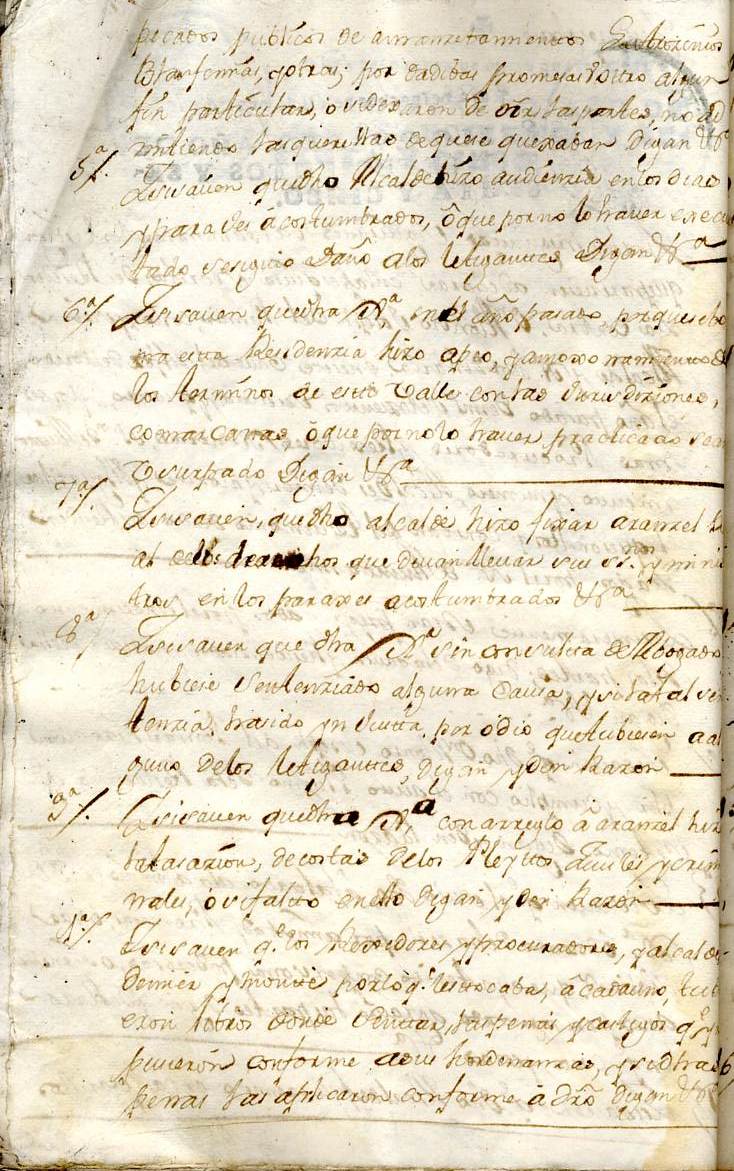 pecados publicos de amanzevamientos
Blasfemias, y otras; por dadibas promesas ù otro algun
fin particular, o si dexaron de oir las partes, no ad
mitiendo las querellas de que se quexaban Digan &ª
5ª/. Si saven que dho Alcalde hizo audienzia en los dias
y parajes acostumbrados, ò que por no lo haver execu
tado se siguio Daño a los letigantes Digan &ª
6ª/. Si saven que dha Rª en el año pasado porque se to
ma esta Residenzia hizo apeo, y amoxonamiento de
los terminos de este Valle con las Jurisdiziones,
comarcanas, ò que por no lo haver practicado sean
Vsurpado Digan &ª
7ª/. Si saven, que dho alcalde hizo fixar aranzel
al de los derechos que devian llevar sus y minis
tros en los parajes acostumbrados &ª
8ª/ Si saven que dha Rª sin consulta de Abogado
hubiese Sentenziado alguna Causa, y si la tal sen
tenzia ha sido ynjusta por odio que tubiesen a al
guno de los letigantes, digan y den Razon
9ª/. Si saven que dha Rª con arreglo â aranzel hizo
la tasazion, de costas de los Pleytos Ziviles y crimi
nales, ò si falto en ello digan y den Razon
1ª/. Si saven q.e los Rexidores y procuradores, y alcaldes
de mier y monte por lo q.e les tocaba, â cada uno, tubi
eron libros donde sentar, las penas y castigos q.e ym
pusieron conforme a sus hordenanzas, y si dhas
penas las aplicaron conforme â dro digan &ª